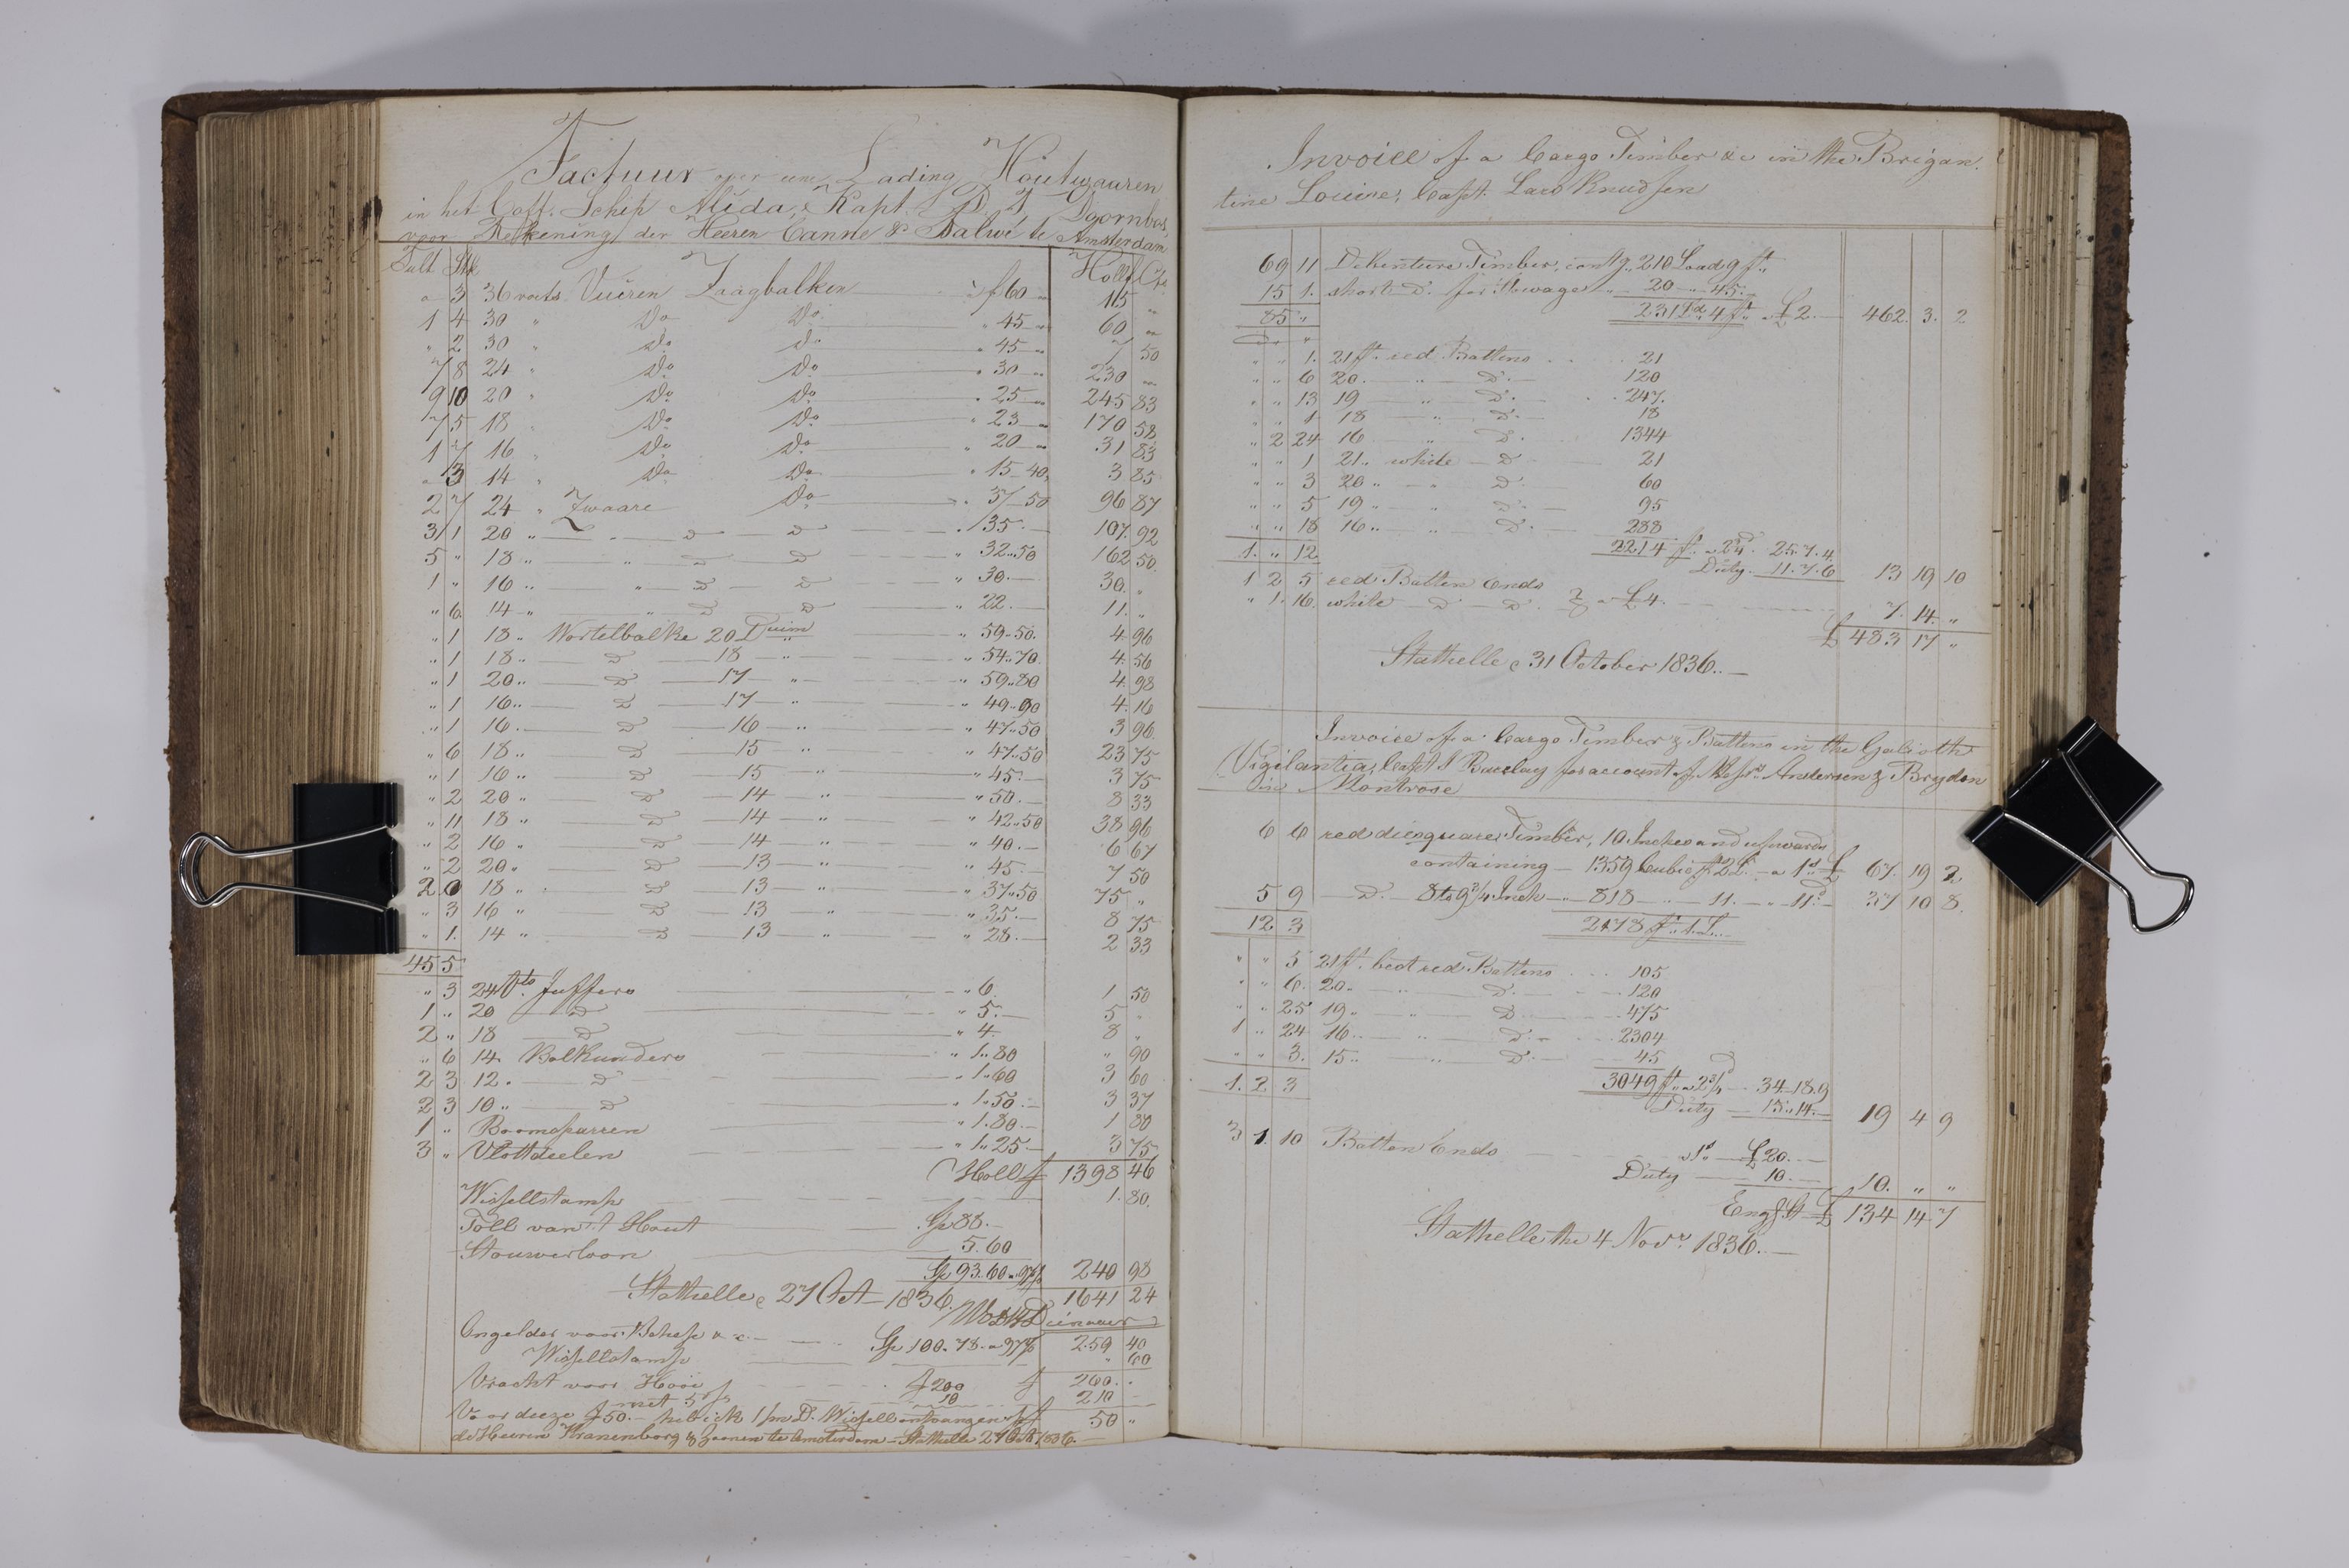 Factuur over een Lading Houtwaaren
in het Coff. Schip Alida, Kapt. P. J. Doornbos,
voor Rekening der Heeren Canne & Balwé te Amsterdam
Tult Stk Hollf Cts
" 3 36 voets Vuëren Zaagbalken f 60 " 15 "
1 4 30 " Do Do " 45 " 60 "
" 2 30 " do do " 45 " 7 50
7 8 24 " Do Do " 30 " 230 "
9 10 20 " Do Do " 25 " 245 83
7 5 18 " Do Do " 23 " 170 58
1 7 16 " Do Do " 20 " 31 83
" 3 14 " Do Do " 15-40 3 85
2 7 24 " Zwaare Do " 37-50 96 87
3 1 20 " " D D " 35.— 107. 92
5 " 18 " " D D " 32.50 162 50.
1 " 16 " " D D " 30.— 30. "
" 6 14 " " D D " 22.— 11. "
" 1 18 " Wortelbalke 20 Duim " 59.50. 4. 96
" 1 18 " D 18 " " 54.70. 4. 56
" 1 20 " D 17 " " 59.80 4. 98
" 1 16 " D 17 " " 49.90 4. 16
" 1 16 " D 16 " " 47.50 3 96
" 6 18 " D 15 " " 47.50 23 75
" 1 16 " D 15 " " 45.— 3 75
" 2 20 " D 14 " " 50.— 8 33
" 11 18 " D 14 " " 42.50 38 96
" 2 16 " D 14 " " 40.— 6 67
" 2 20 " D 13 " " 45.— 7 50
2 0 18 " D 13 " " 37.50 75 "
" 3 16 " D 13 " " 35.— 8 75
" 1. 14 " D 13 " " 28.— 2 33
45 5
" 3 24 fts Juffers " 6. 1 50
1 " 20 D " 5.— 5 "
2 " 18 D " 4.— 8 "
" 6 14. Bolkunders " 1.80 " 90
2 3 12. D " 1.60 3 60
2 3 10 " D " 1.50.— 3 37
1 " Boomsparren " 1.80.— 1 80
3 " Vlottdeelen " 1.25 3 75
Holl f 1398 46
Wissellstamp 1. 80.
Toll van't Hout Sp 88.—
Stouwerloon 5.60
Sp 93.60 a 97ß 240 98
Stathelle, 27 Oct 1836. 1641 24
Dienaar
Ongelder voor Schip &c. Sp 100.75. a 97ß 259 40
Wissellstamp " 60
Vracht voor Hooi f 200 f 260. "
met 5 p% 10 210
Voor deeze f 50.— heb ik 1/m D. Wissell ontvangen f 50 "
de Heeren Kranenborg & Zoonen te Amsterdam - Stathelle 27 Oct 1836.
Invoice of a Cargo Timber &c in the Brigan
tine Louise, Capt. Lars Knudsen
69 11 Debenture Timber, contg. 210 Load 9 ft.
15 1. short D. for Stowage 20 " 45.—
85 " 231 Ld 4 ft a £ 2.— 462. 3. 2
" " 1. 21 ft. red Battens 21
" " 6 20. " D. 120
" " 13 19 " D. 247.
" " 1 18 " D. 18
" 2 24 16 " D. 1344
" " 1 21. white D 21
" " 3 20 " " D. 60
" " 5 19 " " D. 95
" " 18 16 " " D. 288
1. " 12 2214 ft. a 2¾d. 25.7.4.
Duty 11.7.6 13 19 10
1 2 5 red Batten Ends
" 1. 16. white D. D. a £4. 7. 14. "
£ 483 17 "
Stathelle, 31 October 1836.—
Invoice of a Cargo Timber & Battens in the Galioth
Vigilantia, Capt I Barclay for account of Messrs. Andersen & Brydon
in Montrose
6 6 red diesquare Timber, 10 Inches and upwards
containing 1359 Cubic ft 2L. a 1s £ 67. 19 2.
5 9 D. 8 to 9¾ Inch " 818 " 11. " 11d. 37 10 8.
12 3 2178 ft. 1 L.
" " 5 21 ft. best red Battens 105
" " 6. 20. " D. 120
" " 25 19 " " D. 475
1 " 24 16. " D. 2304
" " 3. 15. " D. 45
1. 2 3 3049 ft. a 2¾d 34.18.9
Duty 15.14.— 19 4 9
3 1. 10 Batten Ends £20.—
Duty 10.— 10. " "
Engl. St £ 134 14 7
Stathelle the 4 Novr. 1836.—